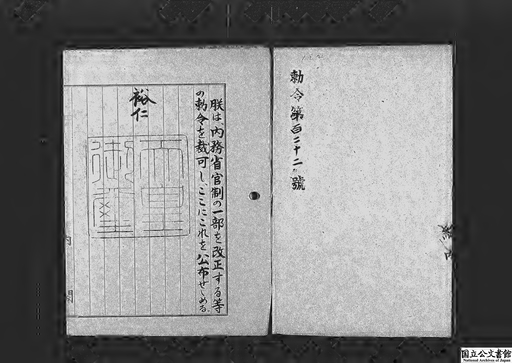 勅令第百二十二號
朕は、内務省官制の一部を改正する等
の勅令を裁可し、ここにこれを公布せしめる。
裕仁
天皇
御璽
内
閣
国立公文書館
National Archives of Japan